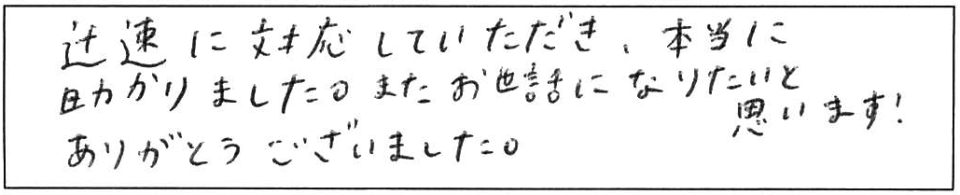 迅速に対応していただき、本当に
助かりました。またお世話になりたいと
思います!
ありがとうございました。